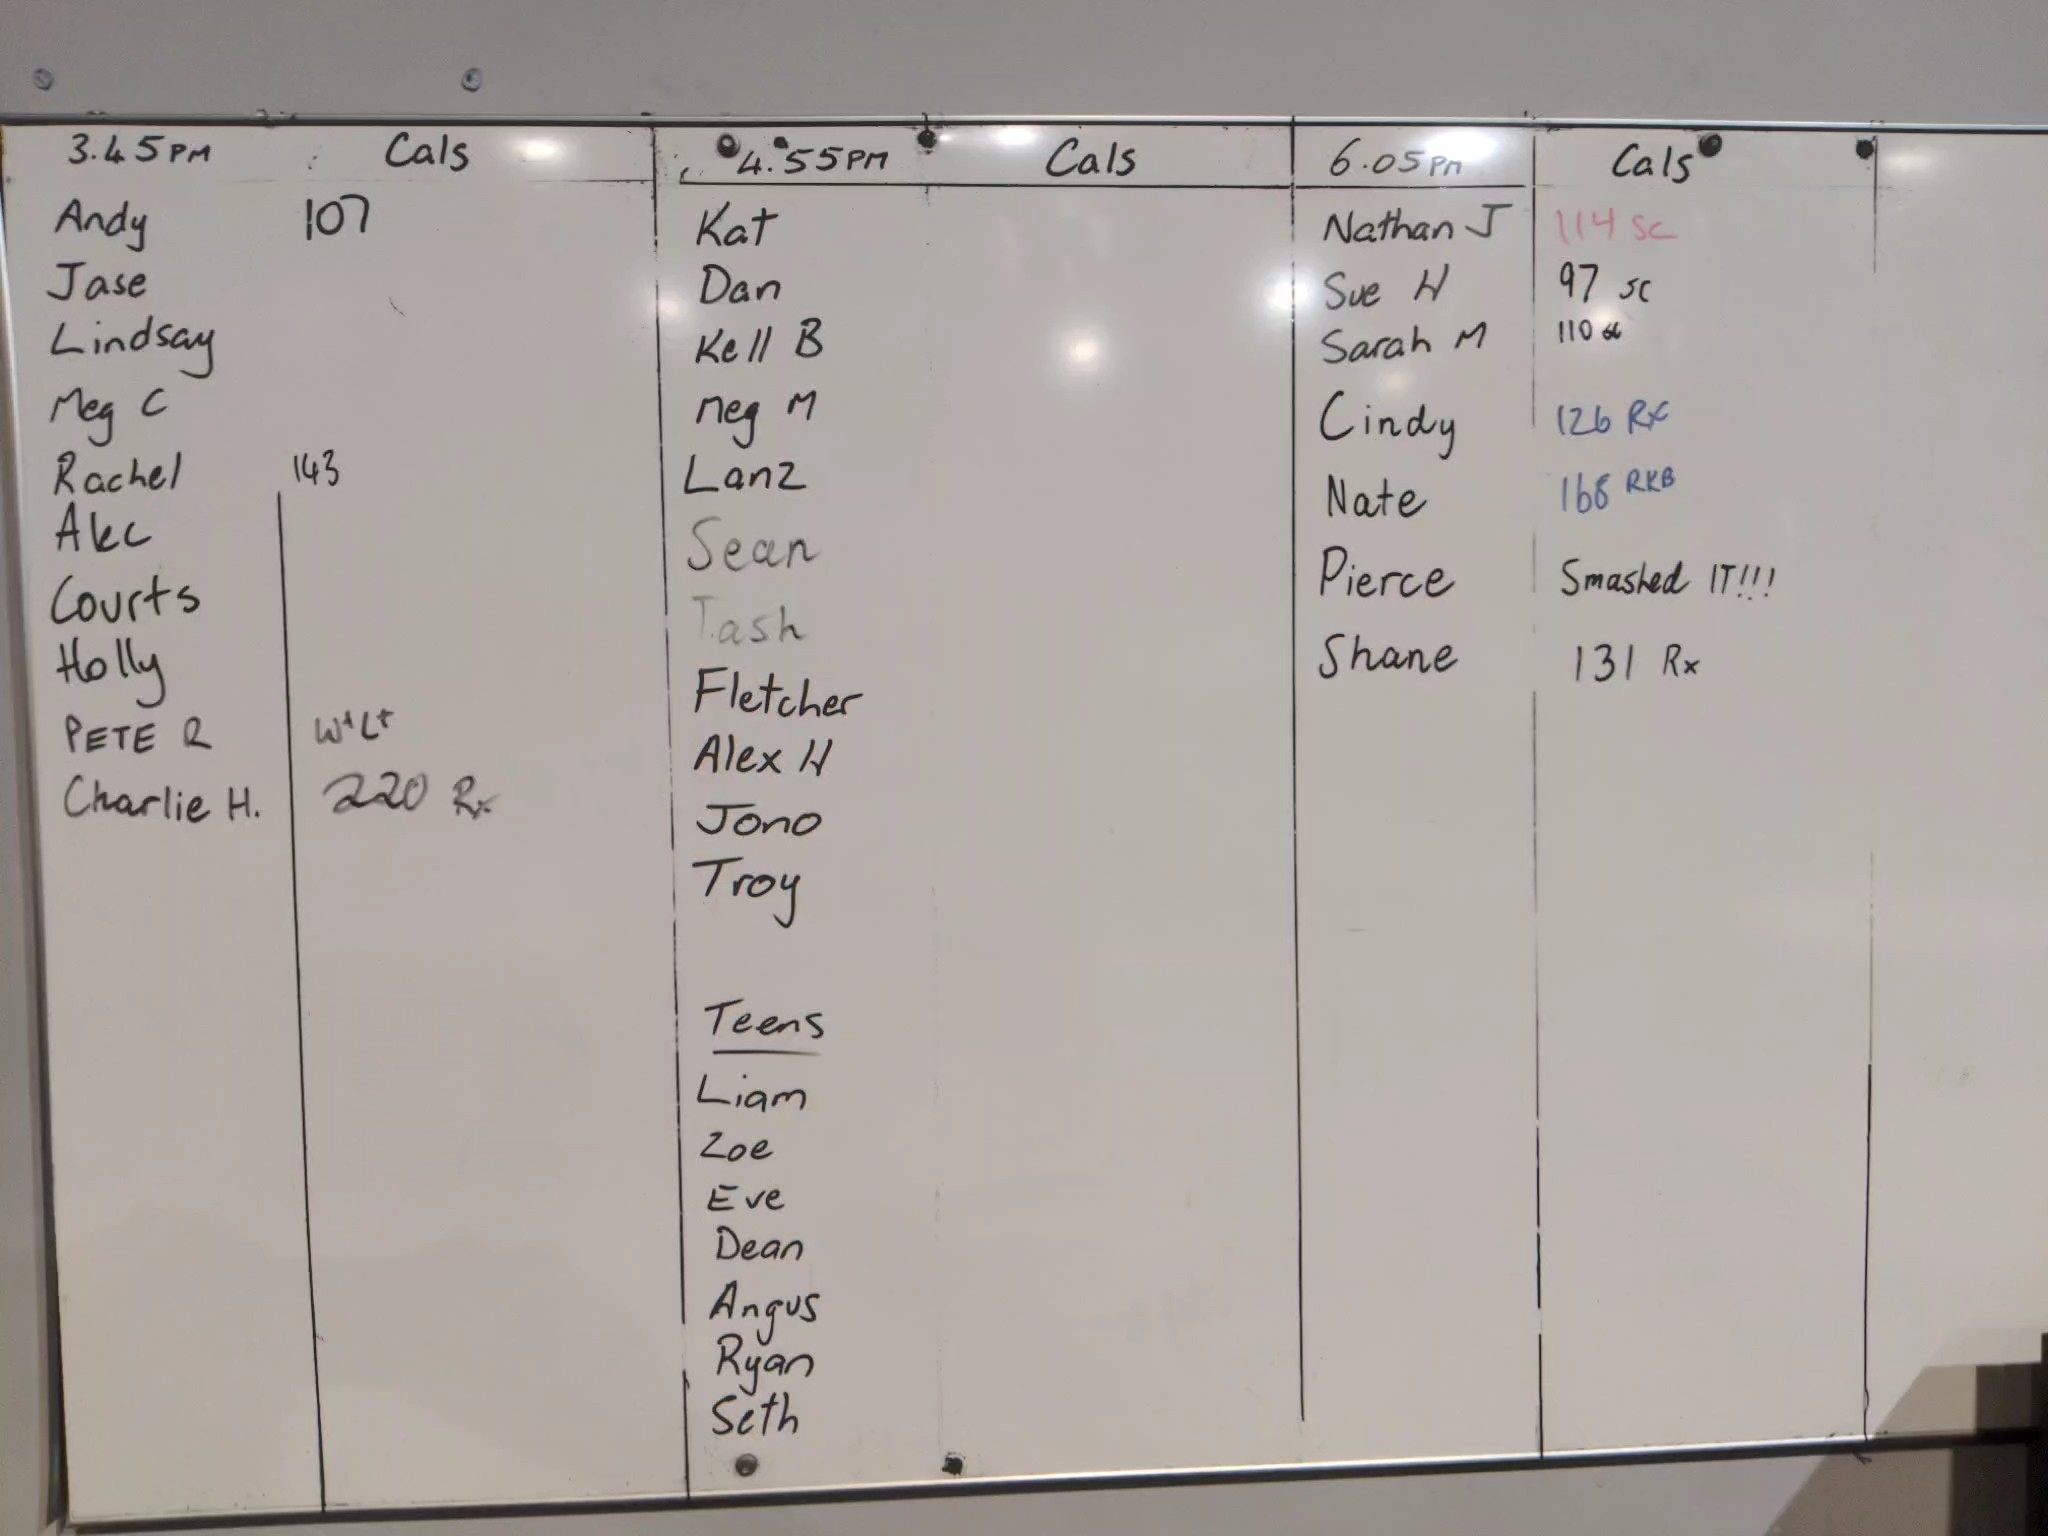 3.45PM Cals
Andy 107
Jase
Lindsay
Meg C
Rachel 143
Alec
Courts
Holly
PETE R W+L+
Charlie H. 220 Rx
4.55PM Cals
Kat
Dan
Kell B
Meg M
Lanz
Sean
Tash
Fletcher
Alex H
Jono
Troy
Teens
Liam
Zoe
Eve
Dean
Angus
Ryan
Seth
6.05PM Cals
Nathan J 114 SC
Sue H 97 SC
Sarah M 110
Cindy 126
Nate 168 RKB
Pierce Smashed IT!!!
Shane 131 Rx